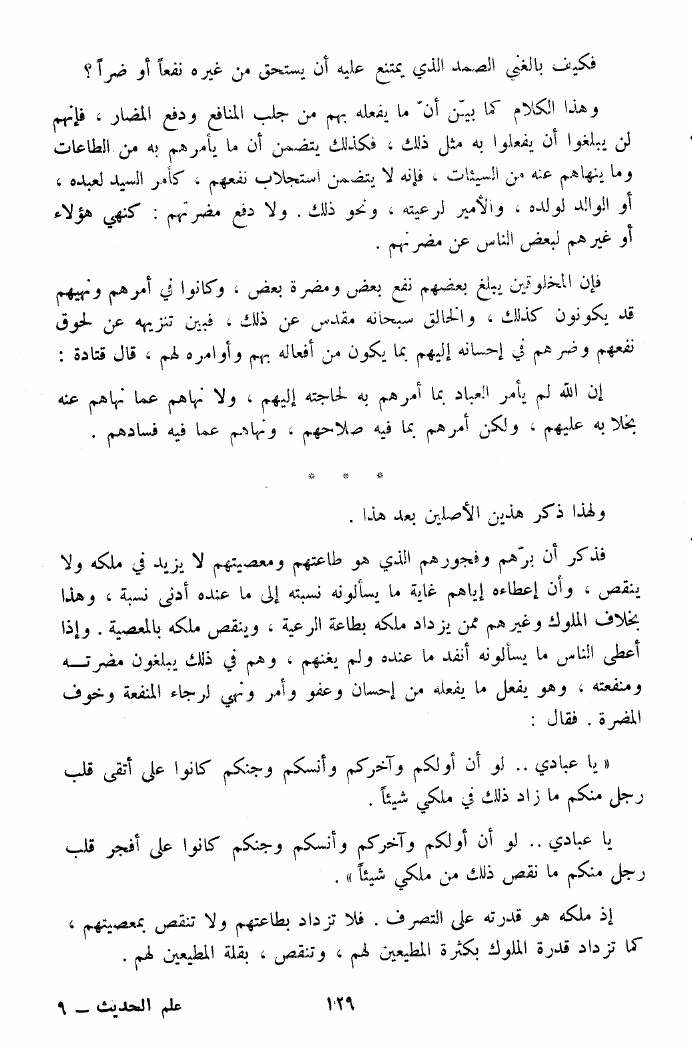 فكيف بالغني الصمد الذي يمتنع عليه أن يستحق من غيره نفعاً أو ضراً ؟
وهذا الكلام كما بيّن أنّ ما يفعله بهم من جلب المنافع ودفع المضار ، فإنهم
لن يبلغوا أن يفعلوا به مثل ذلك ، فكذلك يتضمن أن ما يأمرهم به من الطاعات
وما ينهاهم عنه من السيئات ، فإنه لا يتضمن استجلاب نفعهم ، كأمر السيد لعبده ،
أو الوالد لولده ، والأمير لرعيته ، ونحو ذلك . ولا دفع مضرتهم : كنهي هؤلاء
أو غيرهم لبعض الناس عن مضرتهم .
فإن المخلوقين يبلغ بعضهم نفع بعض ومضرة بعض ، وكانوا في أمرهم ونهيهم
قد يكونون كذلك ، والخالق سبحانه مقدس عن ذلك ، فبين تنزيهه عن لحوق
نفعهم وضرهم في إحسانه إليهم بما يكون من أفعاله بهم وأوامره لهم ، قال قتادة :
إن الله لم يأمر العباد بما أمرهم به لحاجته إليهم ، ولا نهاهم عما نهاهم عنه
بخلا به عليهم ، ولكن أمرهم بما فيه صلاحهم ، ونهاهم عما فيه فسادهم .
* * *
ولهذا ذكر هذين الأصلين بعد هذا .
فذكر أن برّهم وفجورهم الذي هو طاعتهم ومعصيتهم لا يزيد في ملكه ولا
ينقص ، وأن إعطاءه إياهم غاية ما يسألونه نسبته إلى ما عنده أدنى نسبة ، وهذا
بخلاف الملوك وغيرهم ممن يزداد ملكه بطاعة الرعية ، وينقص ملكه بالمعصية . وإذا
أعطى الناس ما يسألونه أنفد ما عنده ولم يغنهم ، وهم في ذلك يبلغون مضرتــه
ومنفعته ، وهو يفعل ما يفعله من إحسان وعفو وأمر ونهي لرجاء المنفعة وخوف
المضرة . فقال :
« يا عبادي .. لو أن أولكم وآخركم وأنسكم وجنكم كانوا على أتقى قلب
رجل منكم ما زاد ذلك في ملكي شيئاً .
يا عبادي .. لو أن أولكم وآخركم وأنسكم وجنكم كانوا على أفجر قلب
رجل منكم ما نقص ذلك من ملكي شيئاً » .
إذ ملكه هو قدرته على التصرف . فلا تزداد بطاعتهم ولا تنقص بمعصيتهم ،
كما تزداد قدرة الملوك بكثرة المطيعين لهم ، وتنقص ، بقلة المطيعين لهم .
١٢٩
علم الحديث – ٩